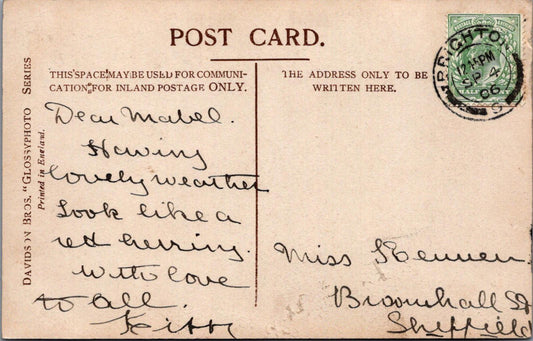 POST CARD.
THIS SPACE MAY BE USED FOR COMMUNI-
CATION FOR INLAND POSTAGE ONLY.
THE ADDRESS ONLY TO BE
WRITTEN HERE.
DAVIDSON BROS. "GLOSSYPHOTO SERIES
Printed in England.
BRIGHTON
PM
SP 4
06
Dear Mabel.
Having
lovely weather
Look like a
red herring.
with love
to all.
Kitty
Miss
Broomhall St
Sheffield